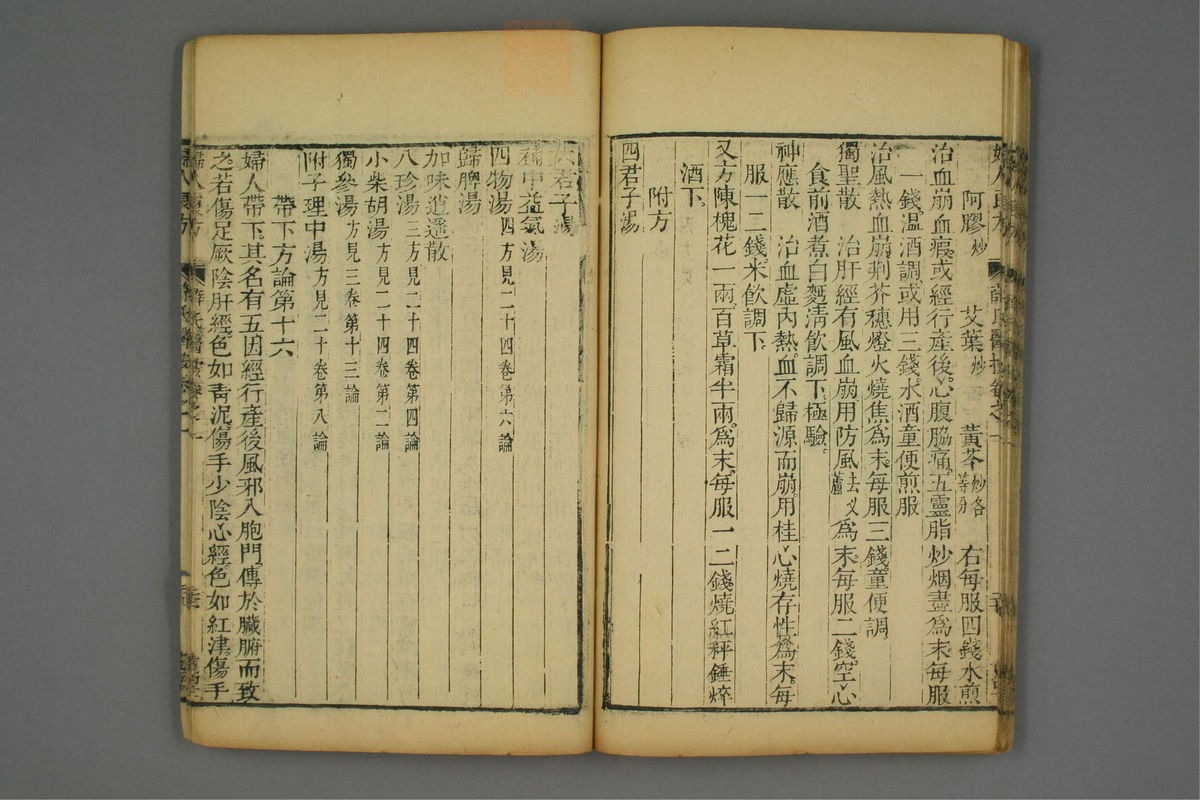 婦人良方
薛氏醫按卷之一
阿膠炒　艾葉炒　黃芩炒各等分　右每服四錢水煎
治血崩血瘕或經行產後心腹脇痛五靈脂炒烟盡為末每服
一錢温酒調或用三錢水酒童便煎服
治風熱血崩荆芥穗燈火燒焦為末每服三錢童便調
獨聖散　治肝經有風血崩用防風去义蘆為末每服二錢空心
食前酒煮白麪清飲調下極驗
神應散　治血虛內熱血不歸源而崩用桂心燒存性為末每
服一二錢米飲調下
又方陳槐花一兩百草霜半兩為末每服一二錢燒紅秤錘焠
酒下
附方
四君子湯
六君子湯
補中益氣湯
四物湯四方見二十四卷第六論
歸脾湯
加味逍遥散
八珍湯三方見二十四卷第四論
小柴胡湯方見二十四卷第二論
獨參湯方見三卷第十三論
附子理中湯方見二十卷第八論
帶下方論第十六
婦人帶下其名有五因經行產後風邪入胞門傳於臟腑而致
之若傷足厥陰肝經色如青泥傷手少陰心經色如紅津傷手
婦人良方
薛氏醫按卷之一